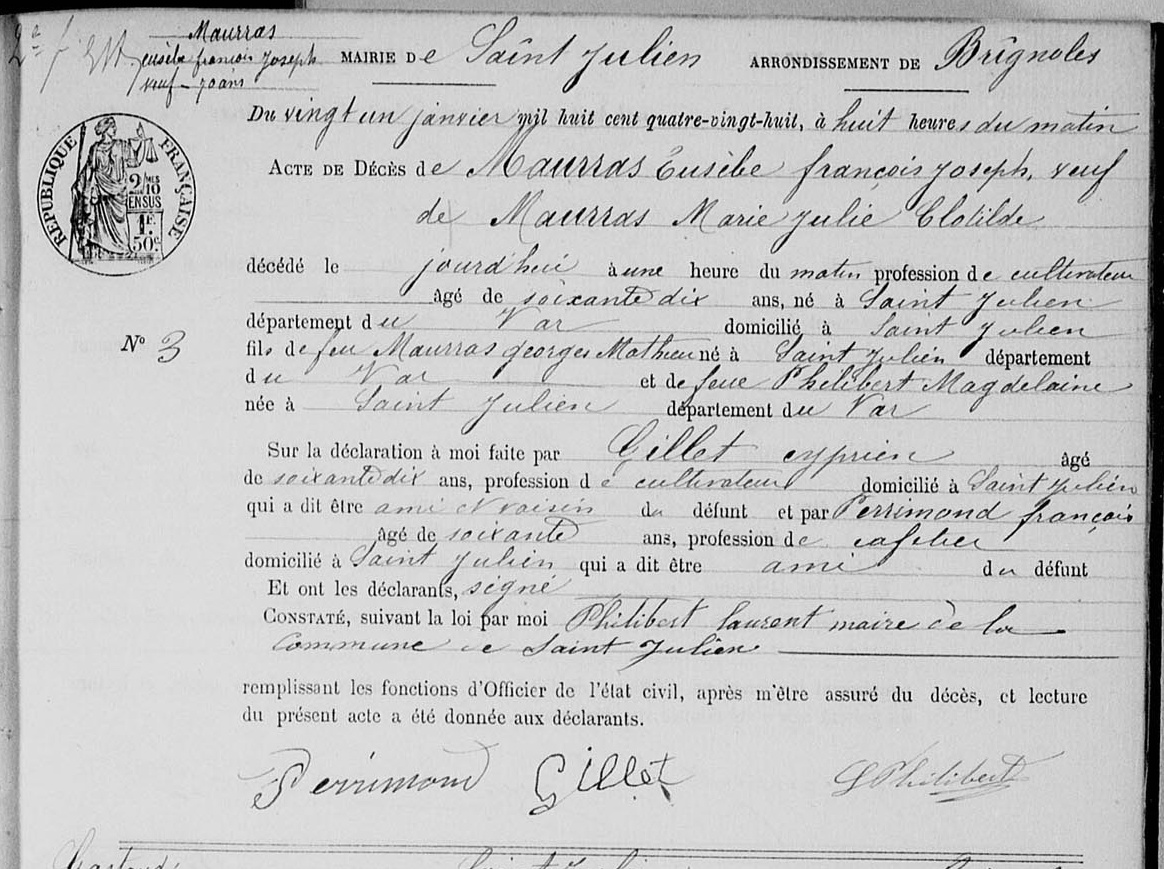 Maurras
eusèbe françois Joseph
veuf - 70 ans
MAIRIE De Saint Julien ARRONDISSEMENT DE Brignoles
Du vingt un janvier mil huit cent quatre-vingt-huit, à huit heures du matin
ACTE DE DÉCÈS de Maurras Eusèbe françois Joseph, veuf
de Maurras Marie Julie Clotilde
RÉPUBLIQUE FRANÇAISE
2/MES
10
EN SUS
1F.
50c.
décédé le jourd'hui à une heure du matin profession de cultivateur
âgé de soixante dix ans, né à Saint Julien
département du Var domicilié à Saint Julien
No 3
fils de feu Maurras georges Mathieu né à Saint Julien département
du Var et de feue Philibert Magdelaine
née à Saint Julien département du Var
Sur la déclaration à moi faite par Gillet cyprien âgé
de soixante dix ans, profession de cultivateur domicilié à Saint Julien
qui a dit être ami et voisin du défunt et par Perrimond françois
âgé de soixante ans, profession de cafetier
domicilié à Saint Julien qui a dit être ami du défunt
Et ont les déclarants, signé
CONSTATÉ, suivant la loi par moi Philibert laurent maire de la
commune de Saint Julien
remplissant les fonctions d'Officier de l'état civil, après m'être assuré du décès, et lecture
du présent acte a été donnée aux déclarants.
Perrimond Gillet L Philibert